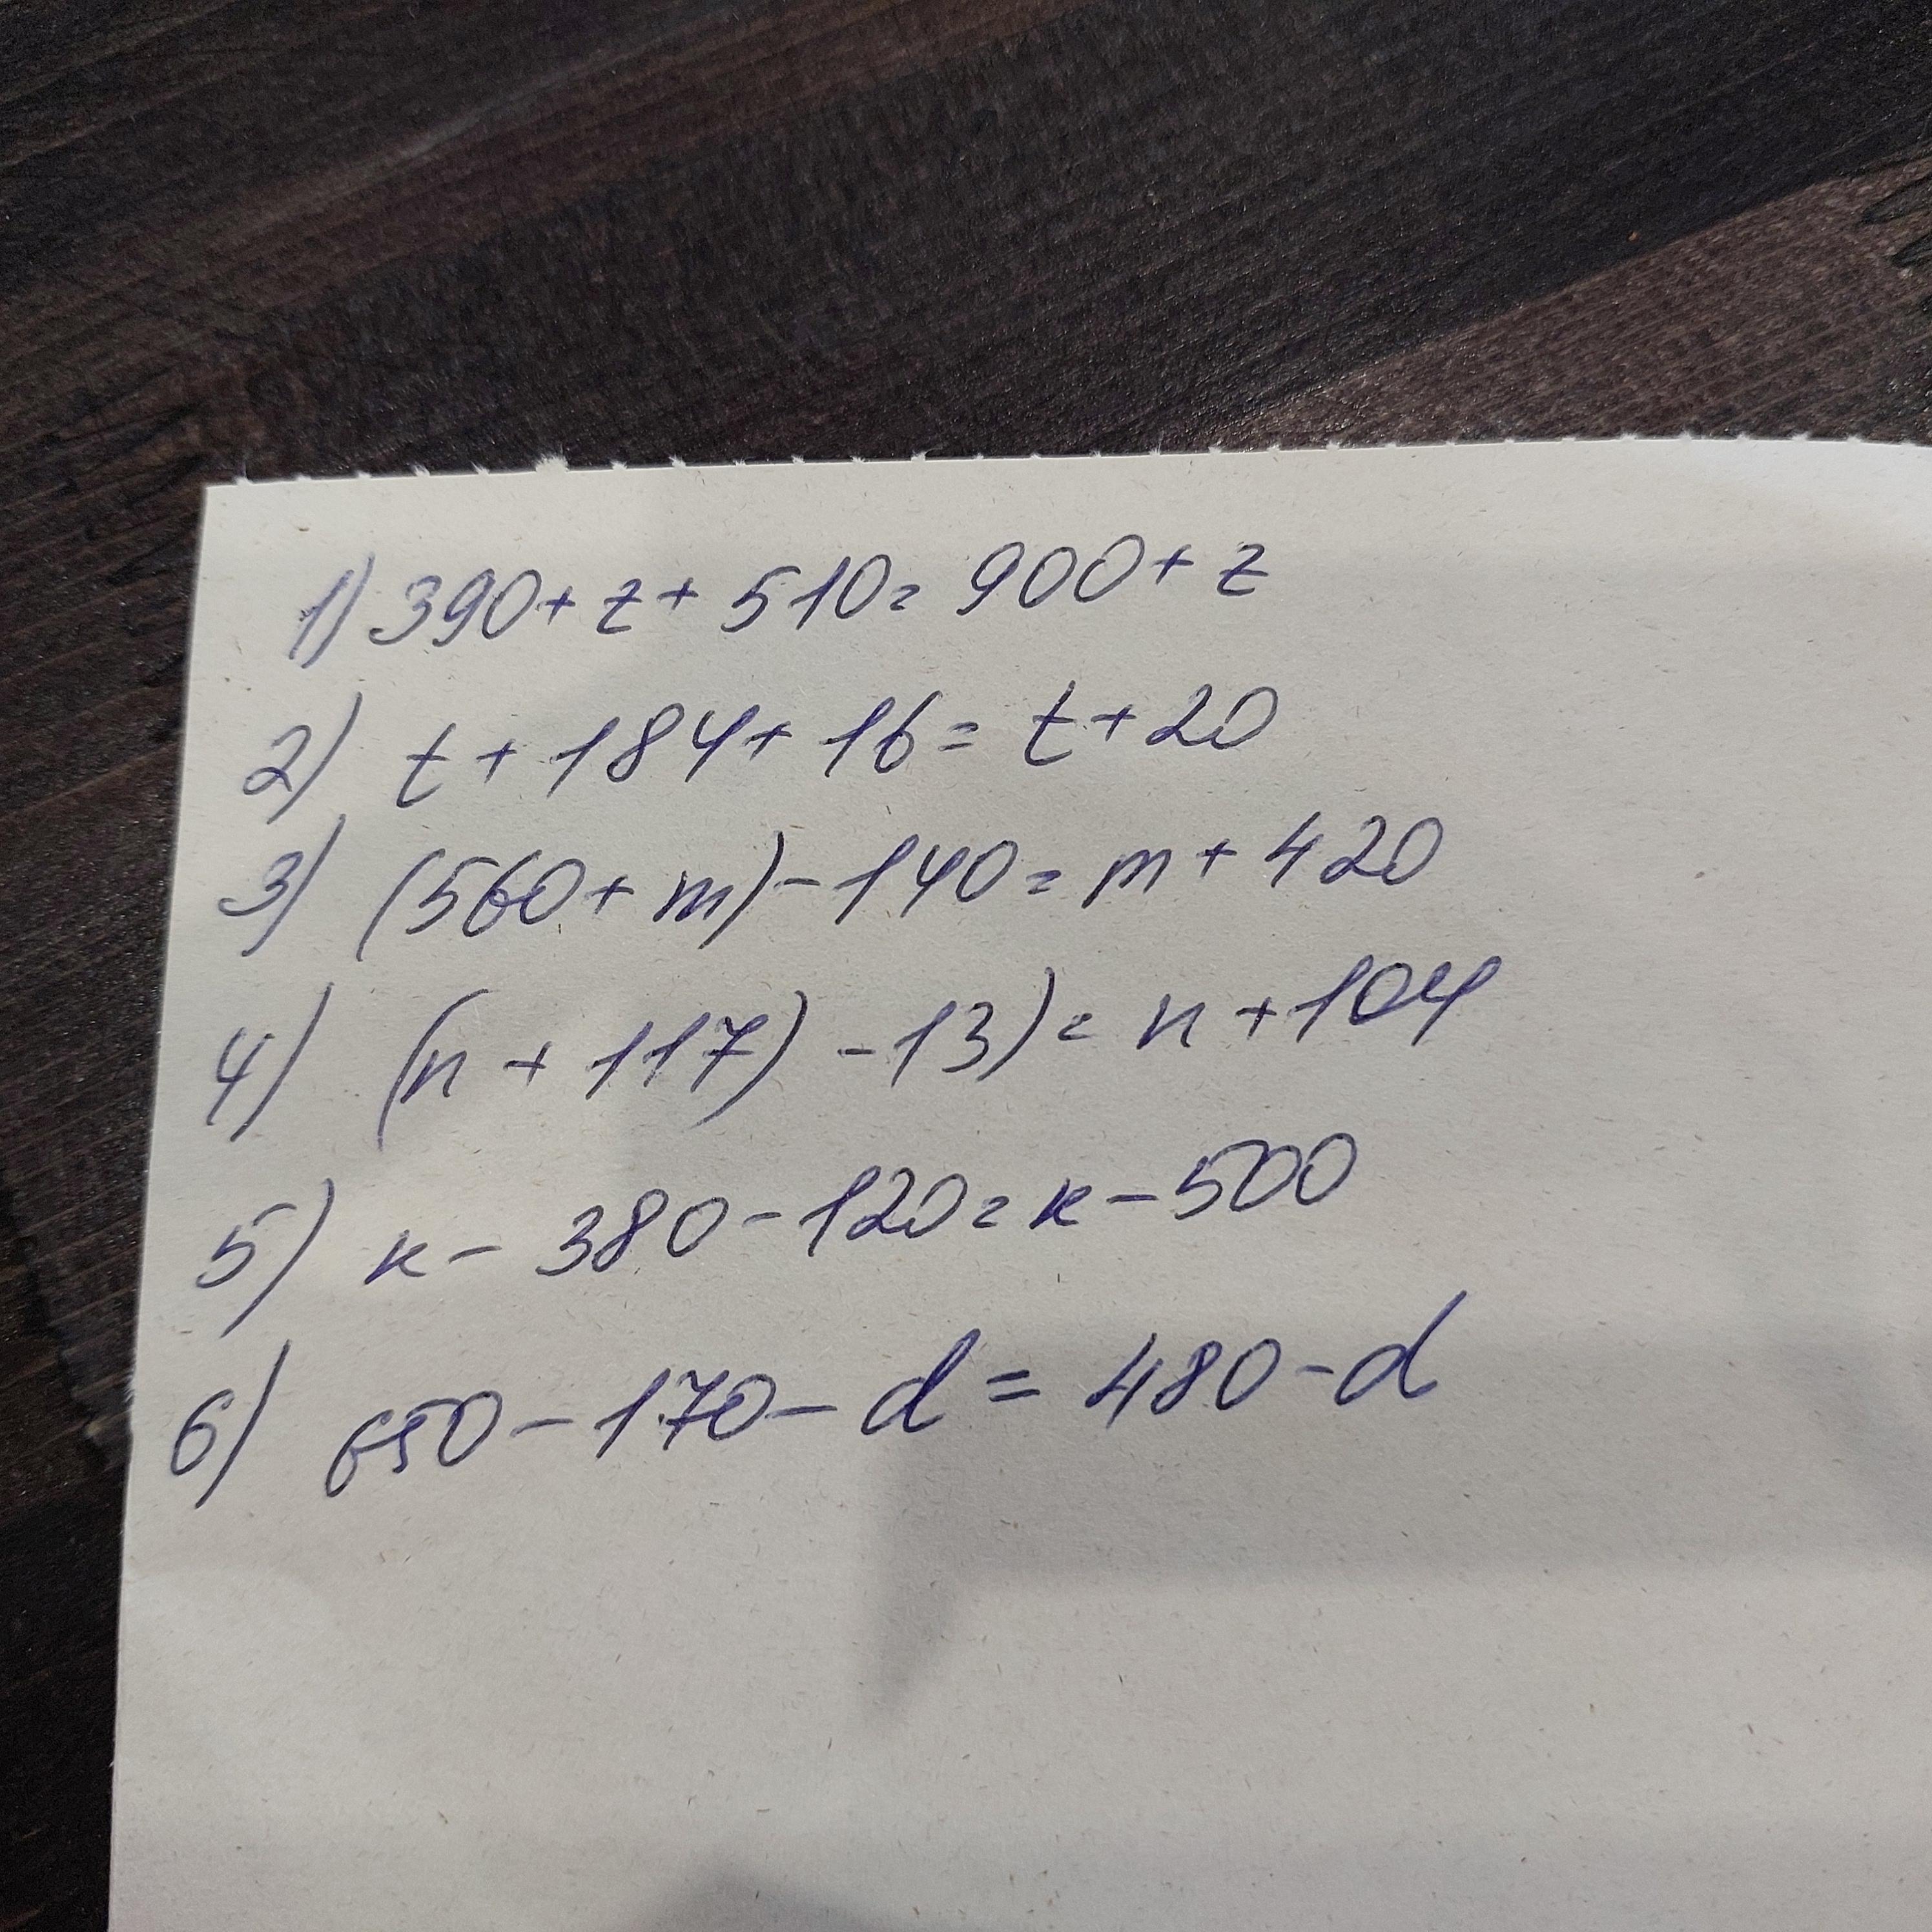 1) 390 + z + 510 = 900 + z
2) t + 184 + 16 = t + 20
3) (560 + m) - 140 = m + 420
4) (n + 117) - 13) = n + 104
5) к - 380 - 120 = к - 500
6) 650 - 170 - d = 480 - d